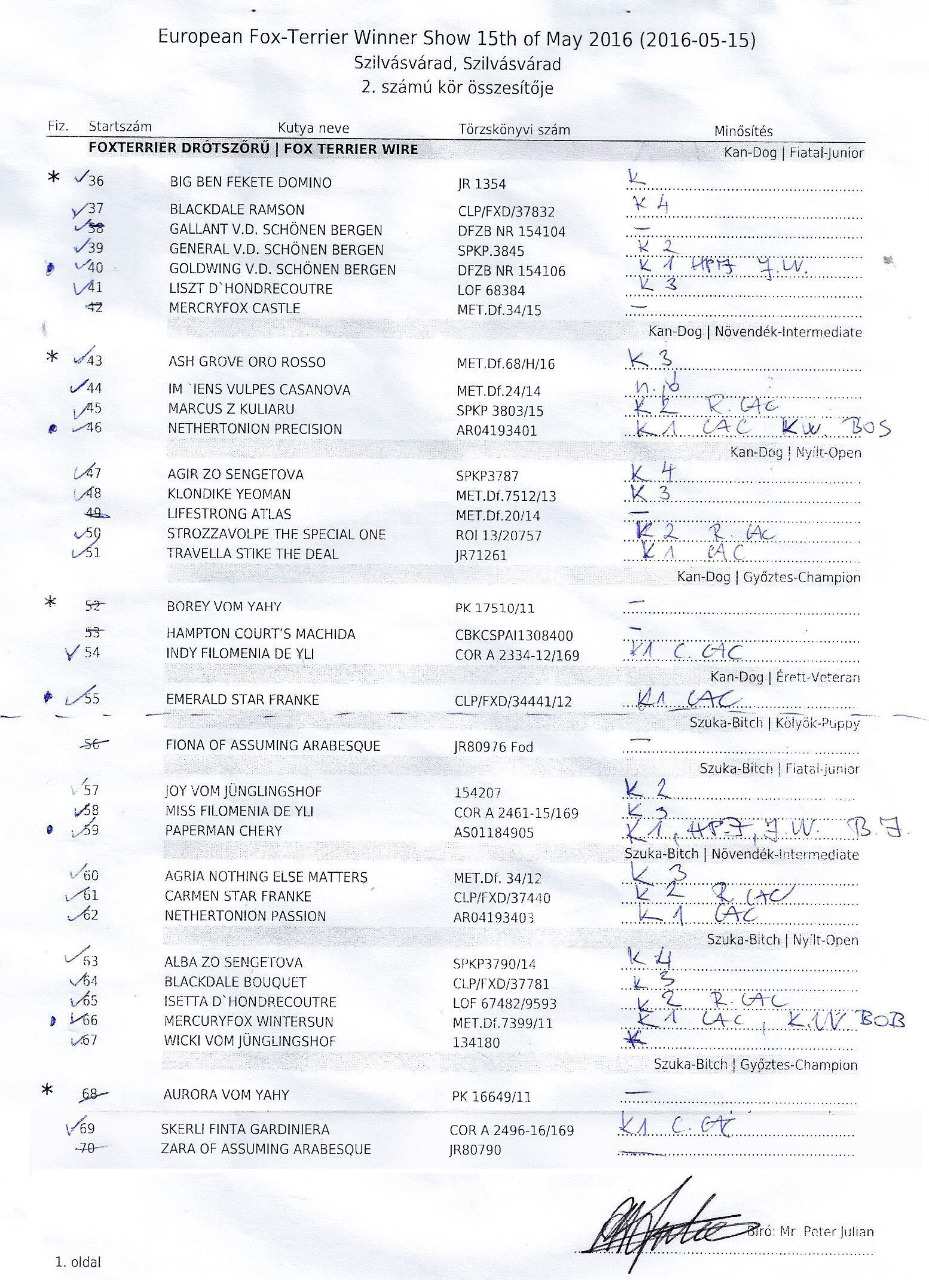 European Fox-Terrier Winner Show 15th of May 2016 (2016-05-15)
Szilvásvárad, Szilvásvárad
2. számú kör összesítője
Fiz. Startszám Kutya neve Törzskönyvi szám Minősítés
FOXTERRIER DRÓTSZŐRŰ | FOX TERRIER WIRE Kan-Dog | Fiatal-Junior
* ✓36 BIG BEN FEKETE DOMINO JR 1354 K
✓37 BLACKDALE RAMSON CLP/FXD/37832 K 4
✓38 GALLANT V.D. SCHÖNEN BERGEN DFZB NR 154104 —
✓39 GENERAL V.D. SCHÖNEN BERGEN SPKP.3845 K 2
✓40 GOLDWING V.D. SCHÖNEN BERGEN DFZB NR 154106 K 1 HPJ J.W.
✓41 LISZT D`HONDRECOUTRE LOF 68384 K 3
42 MERCRYFOX CASTLE MET.Df.34/15 —
Kan-Dog | Növendék-Intermediate
* ✓43 ASH GROVE ORO ROSSO MET.Df.68/H/16 K 3
✓44 IM `IENS VULPES CASANOVA MET.Df.24/14
✓45 MARCUS Z KULIARU SPKP 3803/15 K 2 R. CAC
✓46 NETHERTONION PRECISION AR04193401 K 1 CAC KW. BOS
Kan-Dog | Nyílt-Open
✓47 AGIR ZO SENGETOVA SPKP3787 K 4
✓48 KLONDIKE YEOMAN MET.Df.7512/13 K 3
49 LIFESTRONG ATLAS MET.Df.20/14 —
✓50 STROZZAVOLPE THE SPECIAL ONE ROI 13/20757 K 2 R. CAC
✓51 TRAVELLA STIKE THE DEAL JR71261 K 1 CAC
Kan-Dog | Győztes-Champion
* 52 BOREY VOM YAHY PK 17510/11 —
53 HAMPTON COURT'S MACHIDA CBKCSPAI1308400 —
✓54 INDY FILOMENIA DE YLI COR A 2334-12/169 K1 C. CAC
Kan-Dog | Érett-Veteran
✓55 EMERALD STAR FRANKE CLP/FXD/34441/12 K1 CAC
Szuka-Bitch | Kölyök-Puppy
56 FIONA OF ASSUMING ARABESQUE JR80976 Fod —
Szuka-Bitch | Fiatal-Junior
✓57 JOY VOM JÜNGLINGSHOF 154207 K 2
✓58 MISS FILOMENIA DE YLI COR A 2461-15/169 K 3
✓59 PAPERMAN CHERY AS01184905 K 1, HPJ, J.W. B.J.
Szuka-Bitch | Növendék-Intermediate
✓60 AGRIA NOTHING ELSE MATTERS MET.Df. 34/12 K 3
✓61 CARMEN STAR FRANKE CLP/FXD/37440 K 2 R. CAC
✓62 NETHERTONION PASSION AR04193403 K 1 CAC
Szuka-Bitch | Nyílt-Open
✓63 ALBA ZO SENGETOVA SPKP3790/14 K 4
✓64 BLACKDALE BOUQUET CLP/FXD/37781 K 3
✓65 ISETTA D`HONDRECOUTRE LOF 67482/9593 K 2 R. CAC
✓66 MERCURYFOX WINTERSUN MET.Df.7399/11 K 1 CAC, K.W BOB
✓67 WICKI VOM JÜNGLINGSHOF 134180 K
Szuka-Bitch | Győztes-Champion
* 68 AURORA VOM YAHY PK 16649/11 —
✓69 SKERLI FINTA GARDINIERA COR A 2496-16/169 K1 C. CAC
70 ZARA OF ASSUMING ARABESQUE JR80790 —
Bíró: Mr Peter Julian
1. oldal